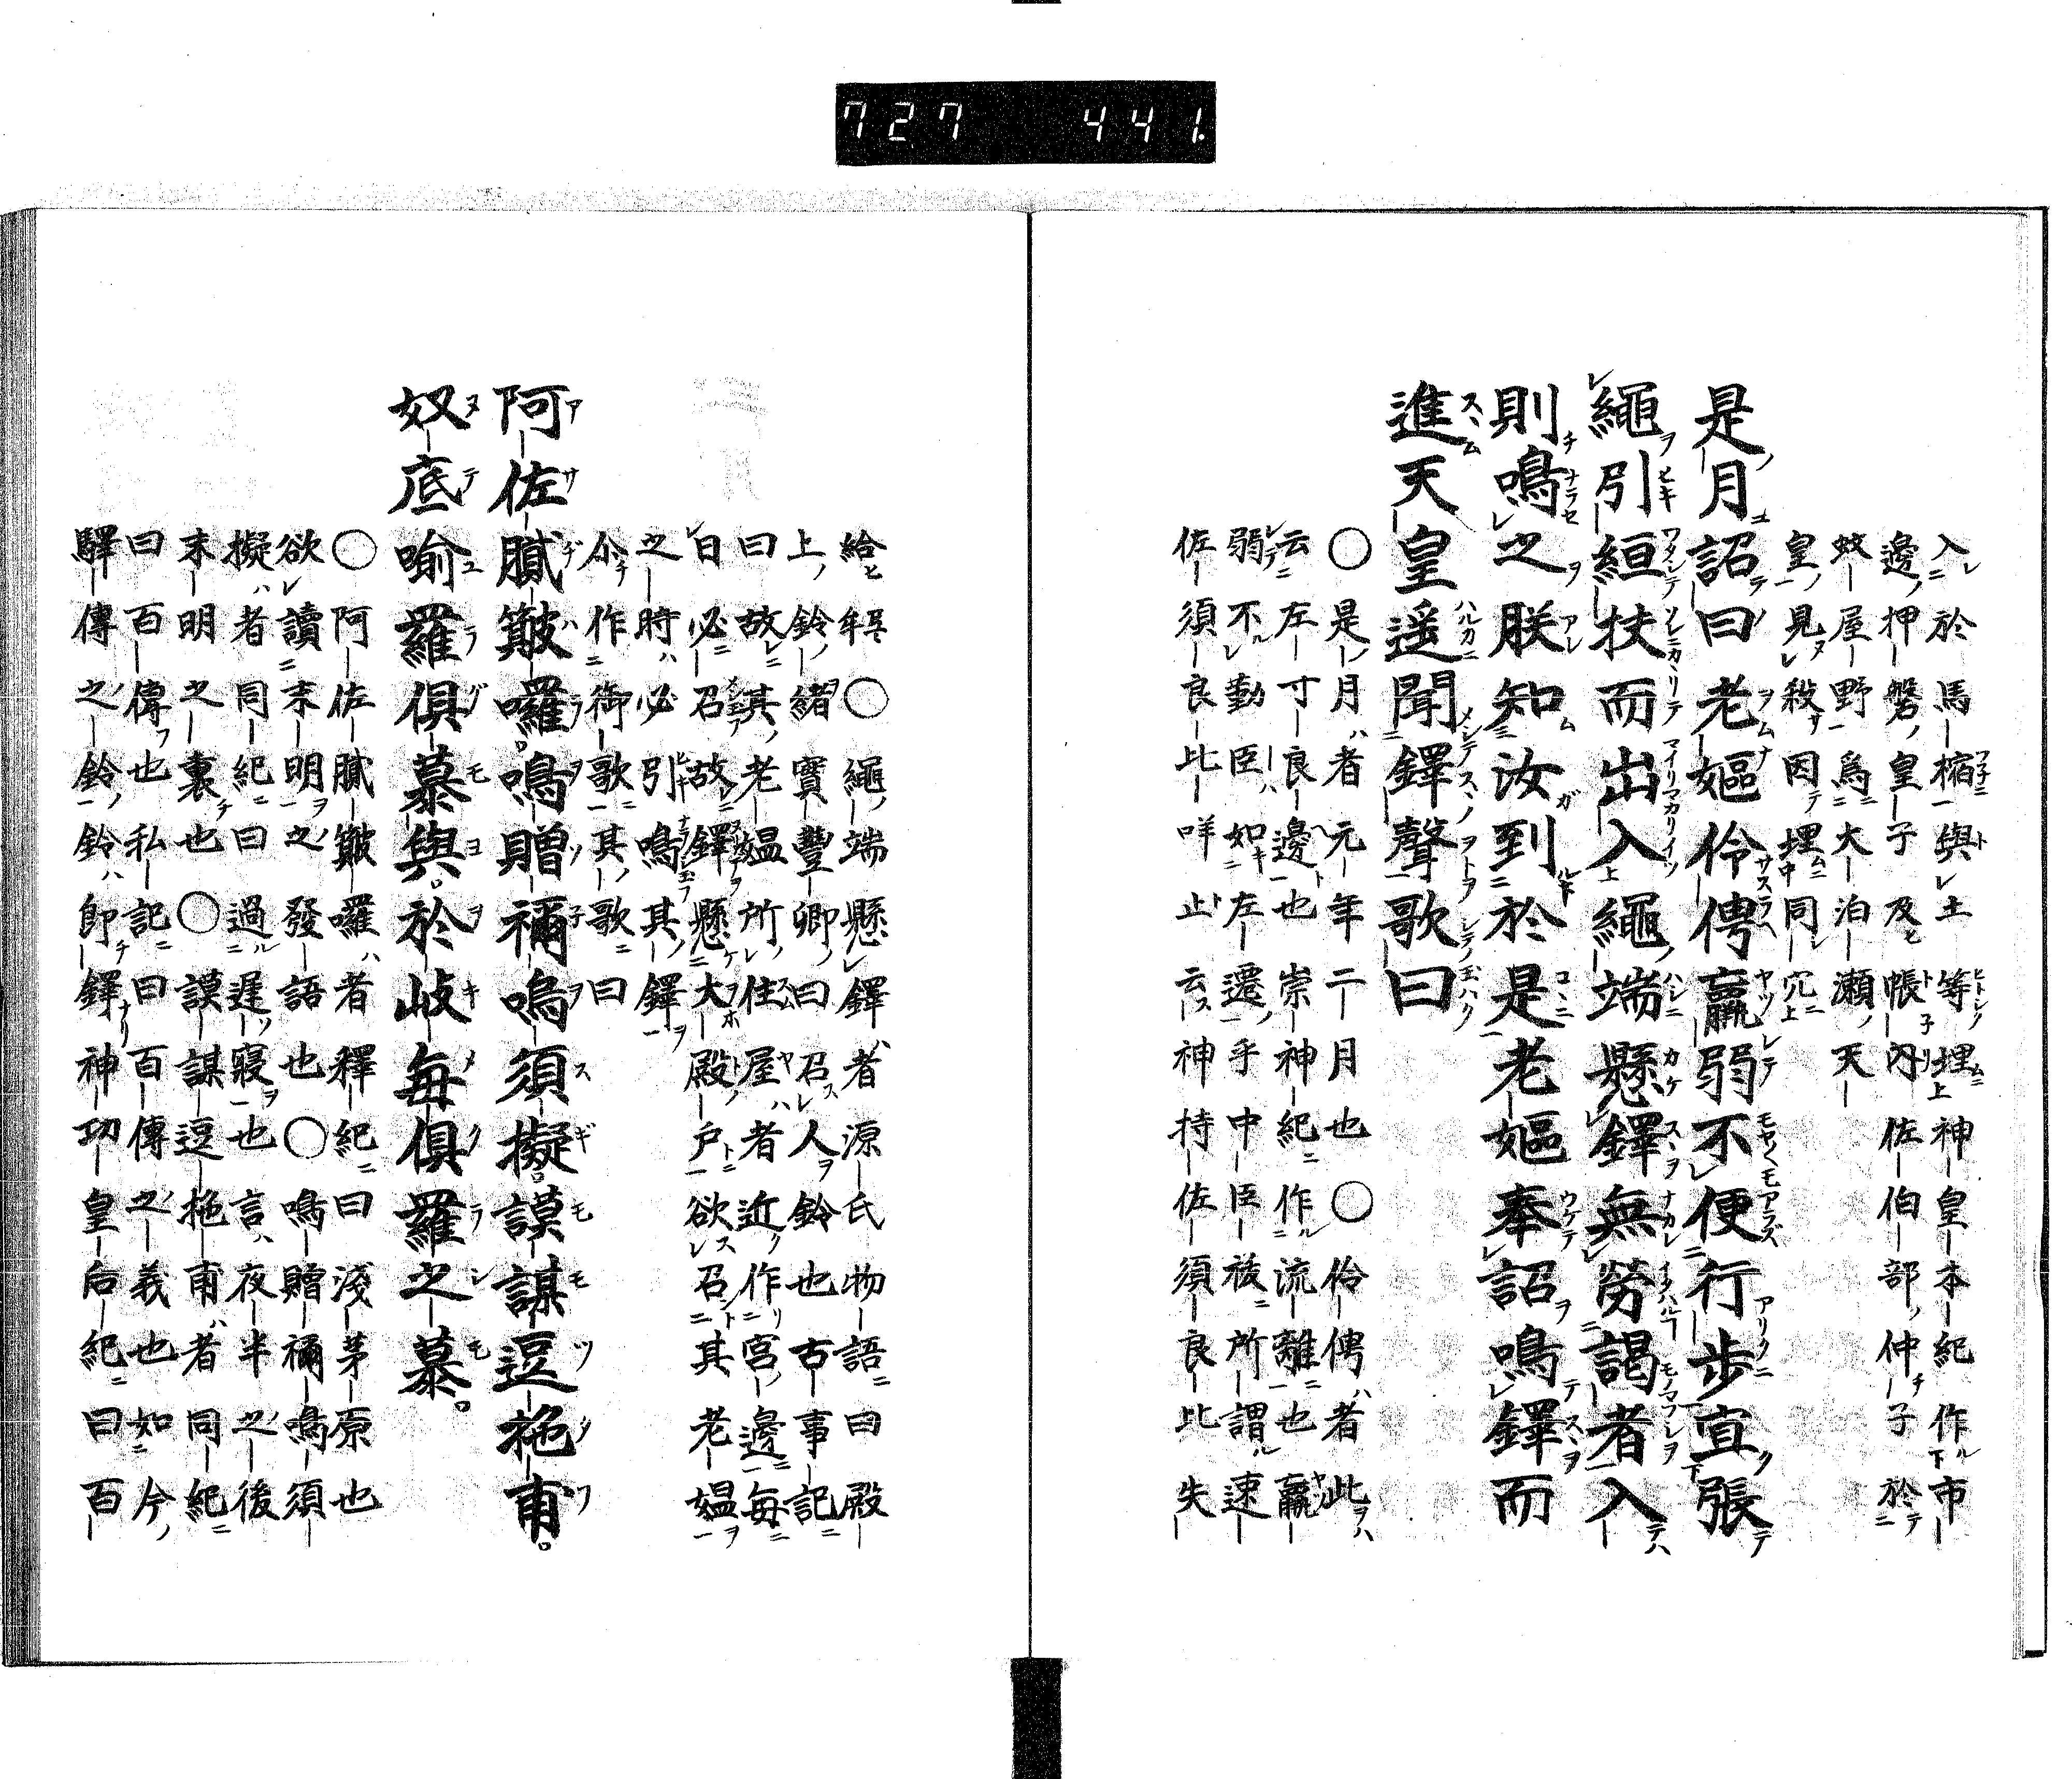 727 441.
入於馬樎與土等埋神皇本紀作市
邊押磐皇子及帳内佐伯部仲子於
蚊屋野為大泊瀬天
皇見殺因埋同穴
是月詔曰老嫗伶俜羸弱不便行步宜張
繩引絙扶而出入繩端懸鐸無勞謁者入
則鳴之朕知汝到於是老嫗奉詔鳴鐸而
進天皇遥聞鐸聲歌曰
○是月者元年二月也○伶俜者此
云左寸良邊也崇神紀作流離也羸
弱不勤臣如左遷乎中臣祓所謂速
佐須良比咩止云神持佐須良比失
給牟○繩端懸鐸者源氏物語曰殿
上鈴緒實豐卿曰召人鈴也古事記
曰故其老媼所住屋者近作宮邊毎
日必召故鐸懸大殿戸欲召其老媼
之時必引鳴其鐸
尒作御歌其歌曰
阿佐膩簸囉鳴贈禰嗚須擬謨謀逗拖甫
奴底喻羅倶慕與於岐毎倶羅之慕
○阿佐膩簸囉者釋紀曰淺茅原也
欲讀末明之發語也○鳴贈禰鳴須
擬者同紀曰過遅寝也言夜半之後
末明之裏也○謨謀逗拖甫者同紀
曰百傳也私記曰百傳之義也如今
驛傳之鈴鈴即鐸神功皇后紀曰百